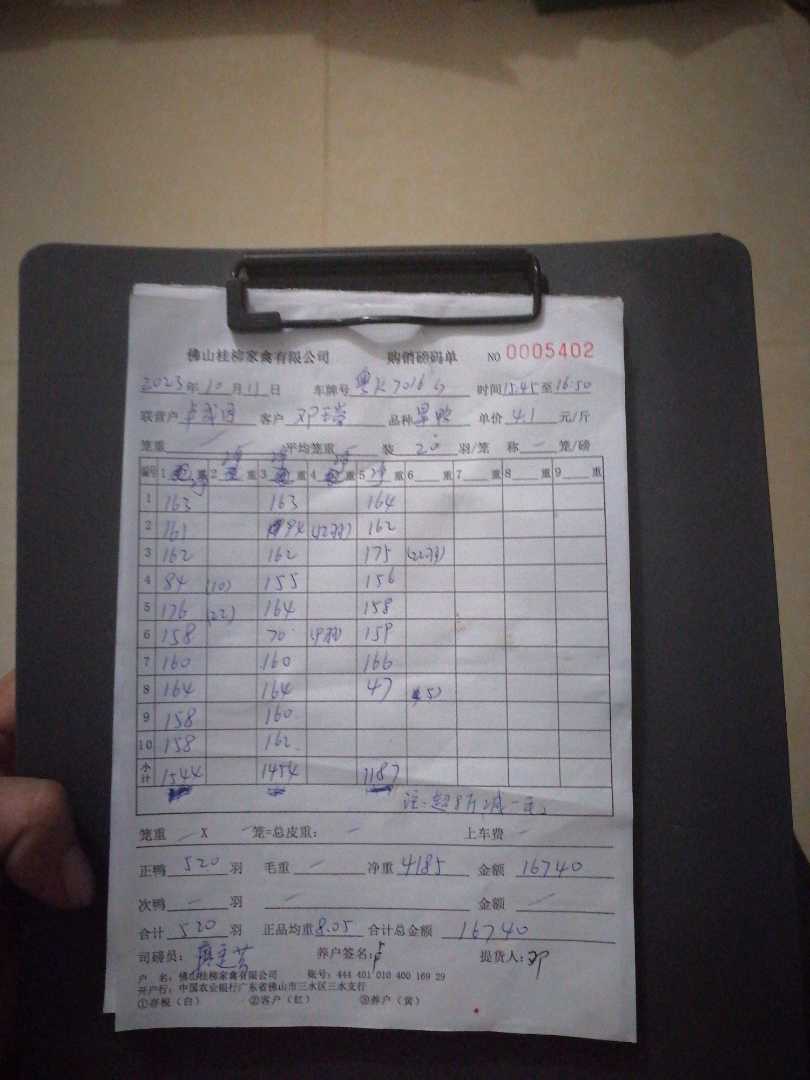 佛山桂柳家禽有限公司 购销磅码单 NO 0005402
2023年10月11日 车牌号 粤K7016 时间15:45至16:50
联营户 客户 邓 品种 单价 4.1 元/斤
笼重 — 平均笼重 — 装 20 羽/笼 称 — 笼/磅
编号 1 净 重 2 净 重 3 净 重 4 净 重 5 净 重 6 重 7 重 8 重 9 重
1 163 163 164
2 161 94 (12羽) 162
3 162 162 175 (22羽)
4 84 (10) 155 156
5 176 (22) 164 158
6 158 70 (9羽) 159
7 160 160 166
8 164 164 47 (5)
9 158 160
10 158 162
小计 1544 1454 1187
注:超8斤减一毛
笼重 — X — 笼=总皮重: — 上车费 —
正鸭 520 羽 毛重 — 净重 4185 金额 16740
次鸭 — 羽 — 金额 —
合计 520 羽 正品均重 8.05 合计总金额 16740
司磅员: 养户签名: 提货人: 邓
户 名: 佛山桂柳家禽有限公司 账号: 444 401 010 400 169 29
开户行: 中国农业银行广东省佛山市三水区三水支行
①存根(白) ②客户(红) ③养户(黄)